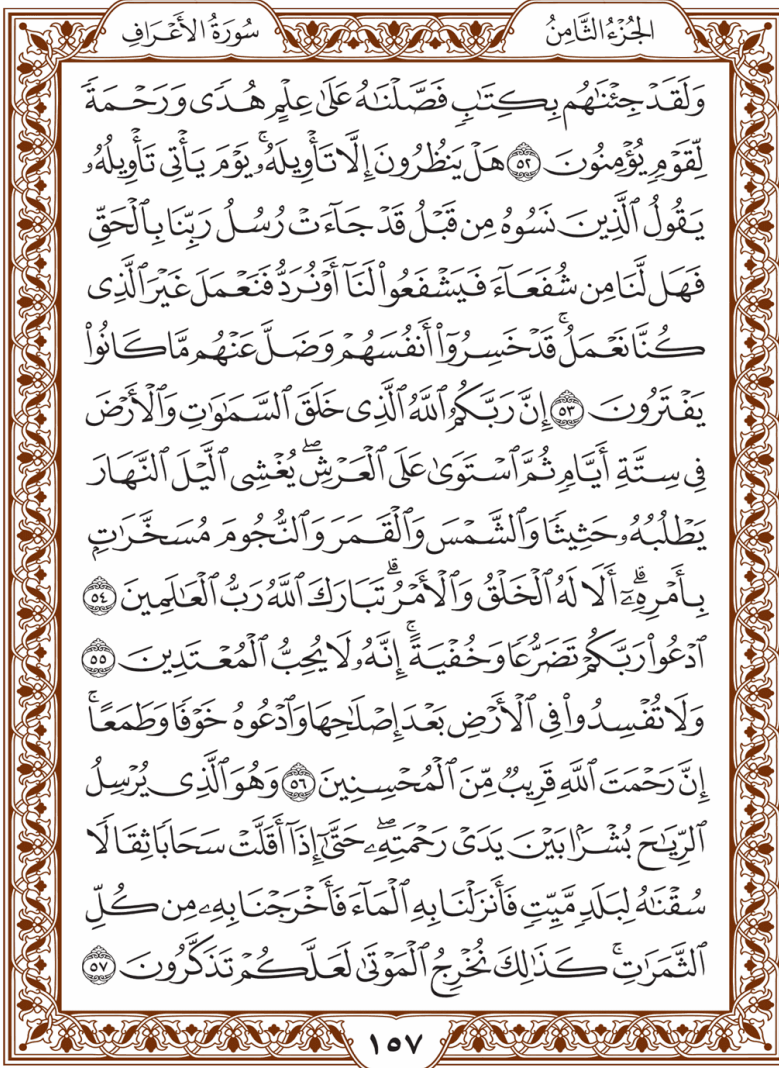 الجُزْءُ الثَّامِنُ
سُورَةُ الأَعْرَافِ
وَلَقَدْ جِئْنَٰهُم بِكِتَٰبٍ فَصَّلْنَٰهُ عَلَىٰ عِلْمٍ هُدًى وَرَحْمَةً
لِّقَوْمٍ يُؤْمِنُونَ ٥٢ هَلْ يَنظُرُونَ إِلَّا تَأْوِيلَهُۥۚ يَوْمَ يَأْتِى تَأْوِيلُهُۥ
يَقُولُ ٱلَّذِينَ نَسُوهُ مِن قَبْلُ قَدْ جَآءَتْ رُسُلُ رَبِّنَا بِٱلْحَقِّ
فَهَل لَّنَا مِن شُفَعَآءَ فَيَشْفَعُوا۟ لَنَآ أَوْ نُرَدُّ فَنَعْمَلَ غَيْرَ ٱلَّذِى
كُنَّا نَعْمَلُۚ قَدْ خَسِرُوٓا۟ أَنفُسَهُمْ وَضَلَّ عَنْهُم مَّا كَانُوا۟
يَفْتَرُونَ ٥٣ إِنَّ رَبَّكُمُ ٱللَّهُ ٱلَّذِى خَلَقَ ٱلسَّمَٰوَٰتِ وَٱلْأَرْضَ
فِى سِتَّةِ أَيَّامٍ ثُمَّ ٱسْتَوَىٰ عَلَى ٱلْعَرْشِۖ يُغْشِى ٱلَّيْلَ ٱلنَّهَارَ
يَطْلُبُهُۥ حَثِيثًا وَٱلشَّمْسَ وَٱلْقَمَرَ وَٱلنُّجُومَ مُسَخَّرَٰتٍۭ
بِأَمْرِهِۦٓۗ أَلَا لَهُ ٱلْخَلْقُ وَٱلْأَمْرُۗ تَبَارَكَ ٱللَّهُ رَبُّ ٱلْعَٰلَمِينَ ٥٤
ٱدْعُوا۟ رَبَّكُمْ تَضَرُّعًا وَخُفْيَةًۚ إِنَّهُۥ لَا يُحِبُّ ٱلْمُعْتَدِينَ ٥٥
وَلَا تُفْسِدُوا۟ فِى ٱلْأَرْضِ بَعْدَ إِصْلَٰحِهَا وَٱدْعُوهُ خَوْفًا وَطَمَعًاۚ
إِنَّ رَحْمَتَ ٱللَّهِ قَرِيبٌ مِّنَ ٱلْمُحْسِنِينَ ٥٦ وَهُوَ ٱلَّذِى يُرْسِلُ
ٱلرِّيَٰحَ بُشْرًۢا بَيْنَ يَدَىْ رَحْمَتِهِۦۖ حَتَّىٰٓ إِذَآ أَقَلَّتْ سَحَابًا ثِقَالًا
سُقْنَٰهُ لِبَلَدٍ مَّيِّتٍ فَأَنزَلْنَا بِهِ ٱلْمَآءَ فَأَخْرَجْنَا بِهِۦ مِن كُلِّ
ٱلثَّمَرَٰتِۚ كَذَٰلِكَ نُخْرِجُ ٱلْمَوْتَىٰ لَعَلَّكُمْ تَذَكَّرُونَ ٥٧
١٥٧